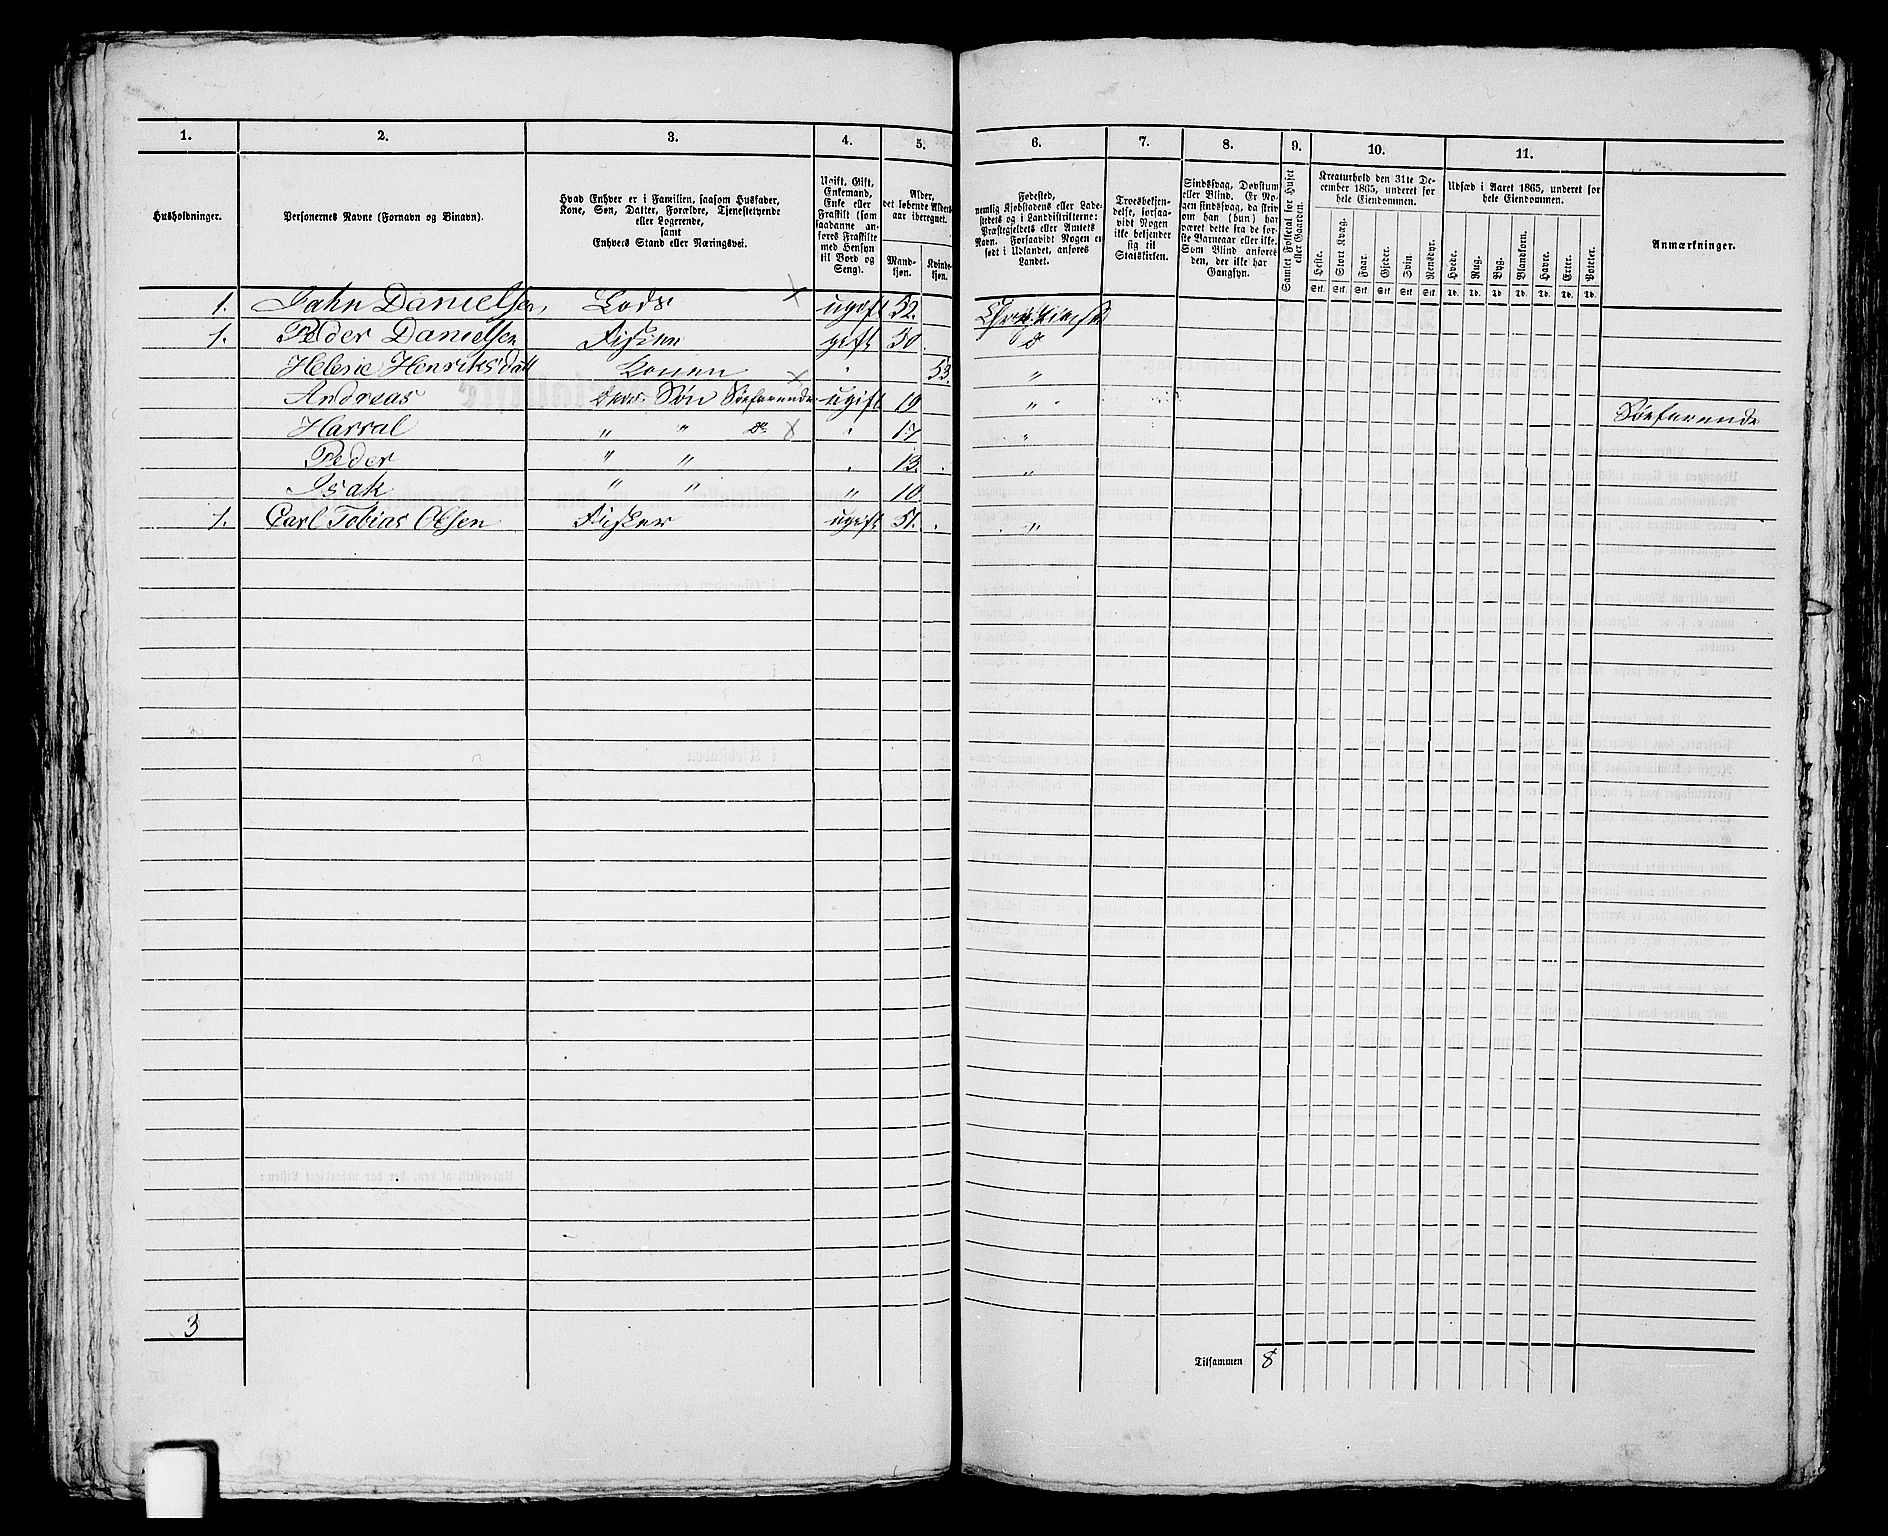 1. 2. 3. 4. 5. 6. 7. 8. 9. 10. 11.
Husholdninger.
Personernes Navne (Fornavn og Binavn).
Hvad Enhver er i Familien, saasom Husfader,
Kone, Søn, Datter, Forældre, Tjenestetyende
eller Logerende,
samt
Enhvers Stand eller Næringsvei.
Ugift, Gift,
Enkemand,
Enke eller
Fraskilt (som
saadanne an-
føres Fraskilte
med Hensyn
til Bord og
Seng).
Alder,
det løbende Alders-
aar iberegnet.
Mand-
kjøn.
Kvinde-
kjøn.
Fødested,
nemlig Kjøbstadens eller Lade-
stedets og i Landdistrikterne:
Præstegjeldets eller Amtets
Navn. Forsaavidt Nogen er
født i Udlandet, anføres
Landet.
Troesbekjen-
delse, forsaa-
vidt Nogen
ikke bekjender
sig til
Statskirken.
Sindssvag, Døvstum
eller Blind. Er No-
gen sindssvag, da skriv
om han (hun) har
været dette fra de før-
ste Barneaar eller ikke.
Som Blind anføres
den, der ikke har
Gangsyn.
Samlet Folketal for Huset
eller Gaarden.
Kreaturhold den 31te De-
cember 1865, underet for
hele Eiendommen.
Heste. Stort Kvæg. Faar. Gjeder. Svin. Rensdyr.
Stk. Stk. Stk. Stk. Stk. Stk.
Udsæd i Aaret 1865, underet for
hele Eiendommen.
Hvede. Rug. Byg. Blandkorn. Havre. Erter. Poteter.
Td. Td. Td. Td. Td. Td. Td.
Anmærkninger.
1. Jahn Danielsen Lods ugift 52.
1. Peder Danielsen Fisker gift 50.
Helene Henriksdatt Konen " 53. "
Andreas Deres Søn Søefarende ugift 19 " Søefarende
Harral " " Do " 17 "
Peder " " " 13. "
Isak " " " 10
1. Carl Tobias Olsen Fisker ugift 51. "
3
Tilsammen 8